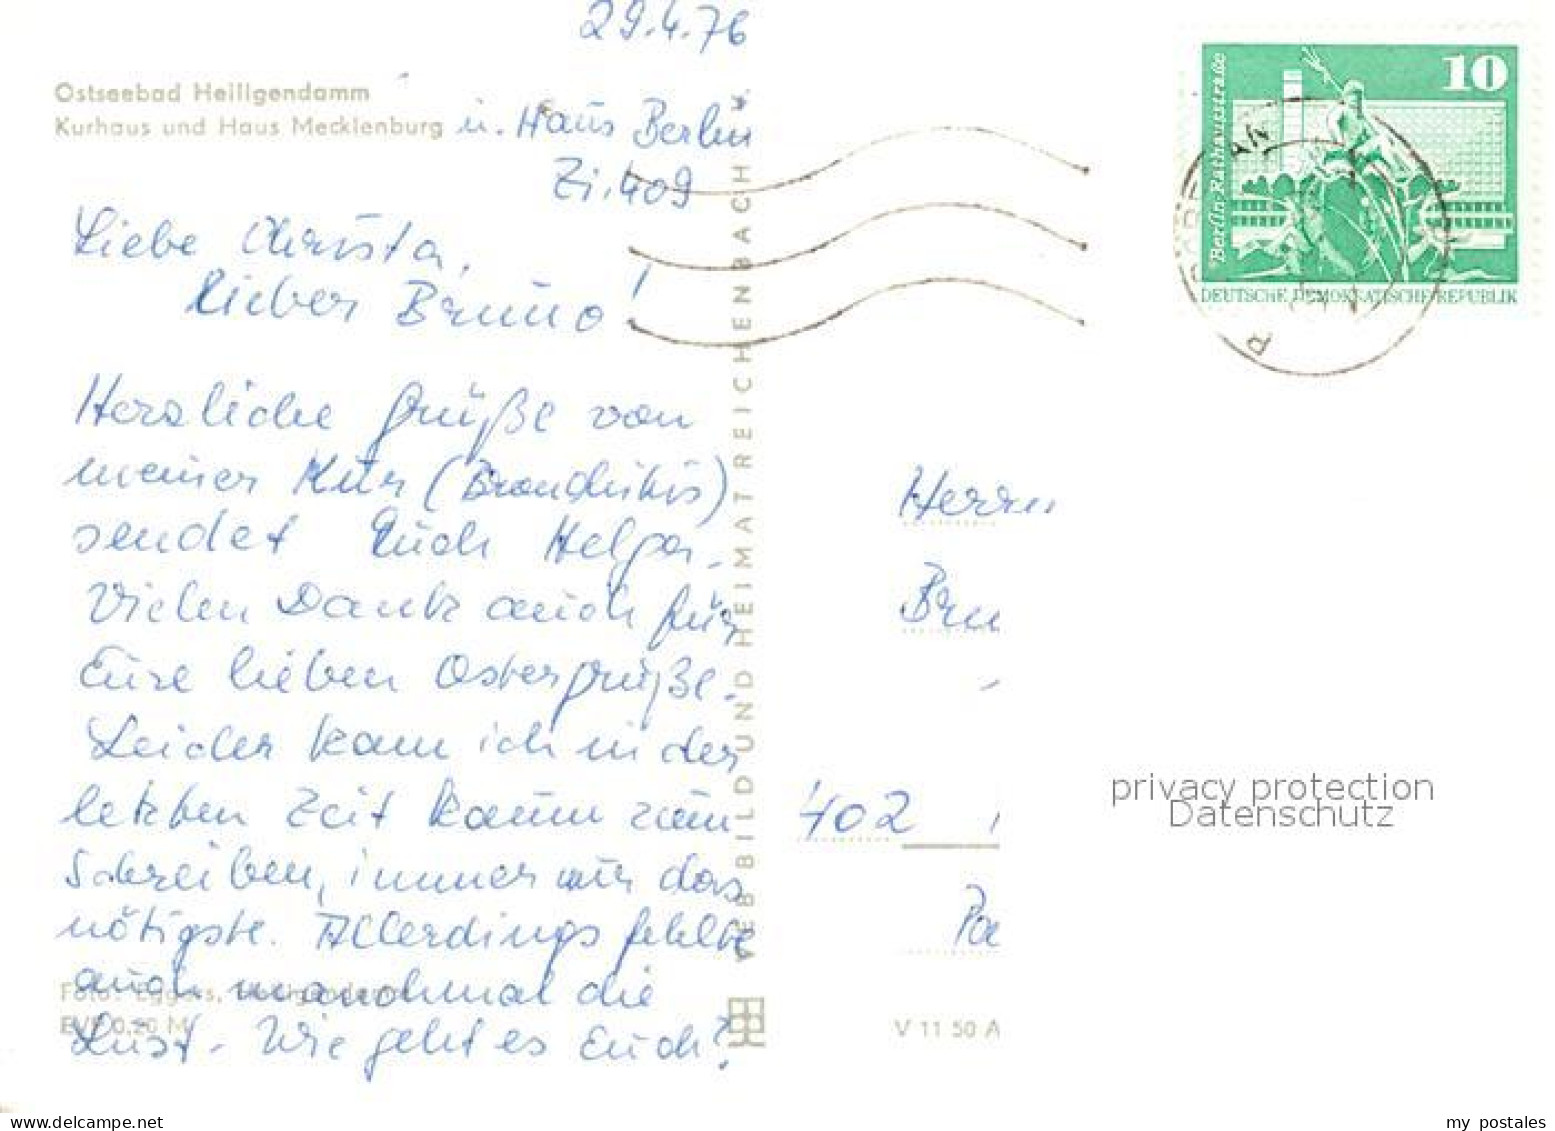 29.4.76
Ostseebad Heiligendamm
Kurhaus und Haus Mecklenburg u. Haus Berlin
Zi. 409
Liebe Christa,
Lieber Bruno!
Herzliche Grüße von
meiner Kur (Bronchitis)
sendet Euch Helga.
Vielen Dank auch für
Eure lieben Ostergrüße.
Leider kam ich in der
letzten Zeit kaum zum
Schreiben, immer nur das
nötigste. Allerdings fehlte
auch manchmal die
Lust. Wie geht es Euch?
Foto: Eggers, Heiligendamm
EVP 0,20 M
VEB BILD UND HEIMAT REICHENBACH
V 11 50 A
10
Berlin, Rathausstraße
DEUTSCHE DEMOKRATISCHE REPUBLIK
Herrn
Bru
402
Pa
privacy protection
Datenschutz
my postales